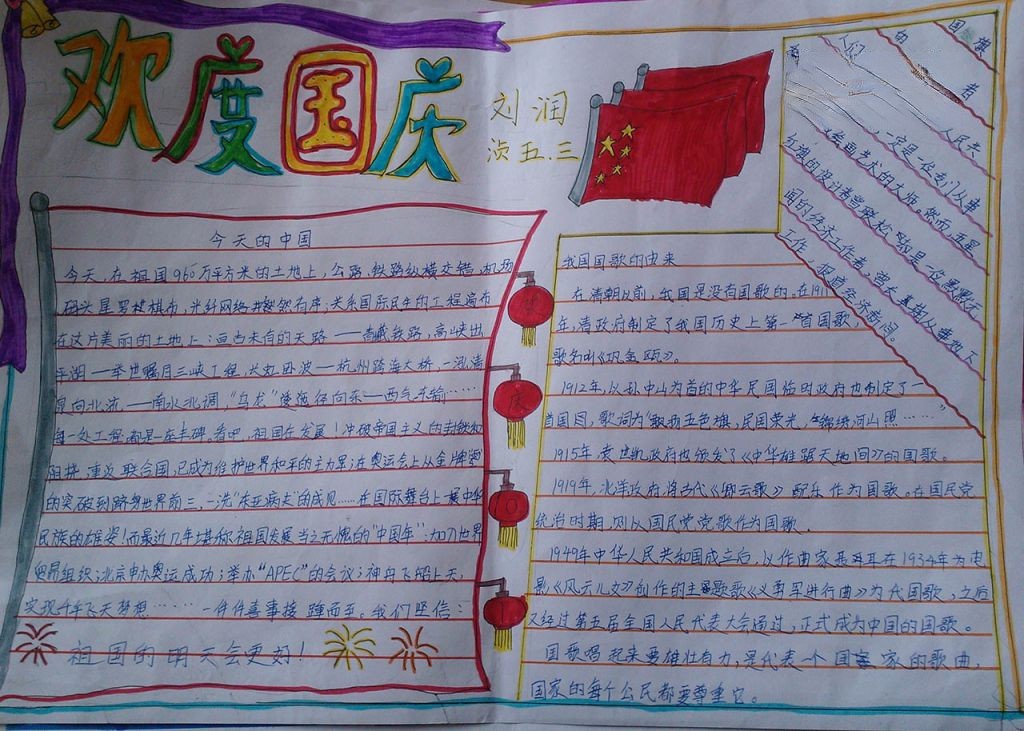 欢度国庆
刘润
浈五.三
今天的中国
今天,在祖国960万平方米的土地上,公路,铁路纵横交错,机场
码头星罗棋布,光纤网络井然有序;关系国际民生的工程遍布
在这片美丽的土地上:亘古未有的天路——青藏铁路,高峡出
平湖——举世瞩目三峡工程,长虹卧波——杭州跨海大桥,一泓清
向北流——南水北调,"乌龙"逶迤径向东——西气东输……
每一处工程都是一座丰碑,看吧,祖国在发展!冲破帝国主义的封锁和
阻挠,重返联合国,已成为维护世界和平的主力军;在奥运会上从金牌
的突破到跻身世界前三,一洗"东亚病夫"的成见……在国际舞台上一展中华
民族的雄姿!而最近几年堪称祖国发展当之无愧的"中国年":加入世界
贸易组织;北京申办奥运成功;举办"APEC"的会议;神舟飞船上天,
实现千年飞天梦想………一件件喜事接踵而至。我们坚信:
祖国的明天会更好!
庆
我国国歌的由来
在清朝以前,我国是没有国歌的。在1911
年,清政府制定了我国历史上第一首国歌,
歌名叫《巩金瓯》。
1912年,以孙中山为首的中华民国临时政府也制定了一
首国国,歌词为"飘扬五色旗,民国荣光,锦绣河山照……"
1915年,袁世凯政府也颁发了《中华雄踞天地间》的国歌。
1919年,北洋政府将古代《卿云歌》配乐作为国歌。在国民党
统治时期,则以国民党党歌作为国歌。
1949年中华人民共和国成立后,以作曲家聂耳在1934年为电
影《风云儿女》创作的主题歌《义勇军进行曲》为代国歌,之后
又经过第五届全国人民代表大会通过,正式成为中国的国歌。
国歌唱起来要雄壮有力,是代表一个国家的歌曲,
国家的每个公民都要尊重它。
人们的国旗
者
人民共
,一定是一位专门从事
绘画艺术的大师。然而,五星
红旗的设计者曾联松却是一位默默无
闻的经济工作者,曾大基期从事地下
工作,很精经济新闻。